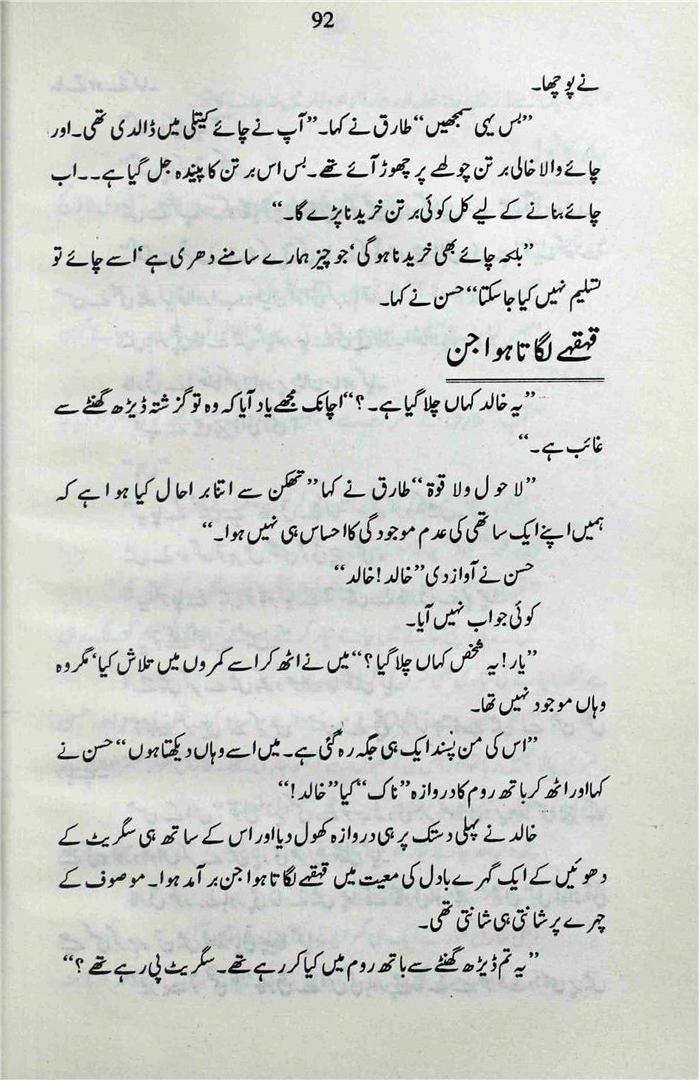 92
نے پوچھا۔
”بس یہی سمجھیں“ طارق نے کہا۔ ”آپ نے چائے کیتلی میں ڈالدی تھی۔ اور
چائے والا خالی برتن چولھے پر چھوڑ آئے تھے۔ بس اس برتن کا پیندہ جل گیا ہے۔۔ اب
چائے بنانے کے لیے کل کوئی برتن خریدنا پڑے گا۔“
”بلکہ چائے بھی خریدنا ہوگی‘ جو چیز ہمارے سامنے دھری ہے‘ اسے چائے تو
تسلیم نہیں کیا جا سکتا“ حسن نے کہا۔
قہقہے لگاتا ہوا جن
”یہ خالد کہاں چلا گیا ہے۔؟“ اچانک مجھے یاد آیا کہ وہ تو گزشتہ ڈیڑھ گھنٹے سے
غائب ہے۔“
”لاحول ولا قوۃ“ طارق نے کہا ”تھکن سے اتنا برا حال کیا ہوا ہے کہ
ہمیں اپنے ایک ساتھی کی عدم موجودگی کا احساس ہی نہیں ہوا۔“
حسن نے آواز دی ”خالد! خالد“
کوئی جواب نہیں آیا۔
”یار! یہ شخص کہاں چلا گیا؟“ میں نے اٹھ کر اسے کمروں میں تلاش کیا‘ مگر وہ
وہاں موجود نہیں تھا۔
”اس کی من پسند ایک ہی جگہ رہ گئی ہے۔ میں اسے وہاں دیکھتا ہوں“ حسن نے
کہا اور اٹھ کر باتھ روم کا دروازہ ”ناک“ کیا ”خالد!“
خالد نے پہلی دستک پر ہی دروازہ کھول دیا اور اس کے ساتھ ہی سگریٹ کے
دھوئیں کے ایک گہرے بادل کی معیت میں قہقہے لگاتا ہوا جن برآمد ہوا۔ موصوف کے
چہرے پر شانتی ہی شانتی تھی۔
”یہ تم ڈیڑھ گھنٹے سے باتھ روم میں کیا کر رہے تھے۔ سگریٹ پی رہے تھے؟“